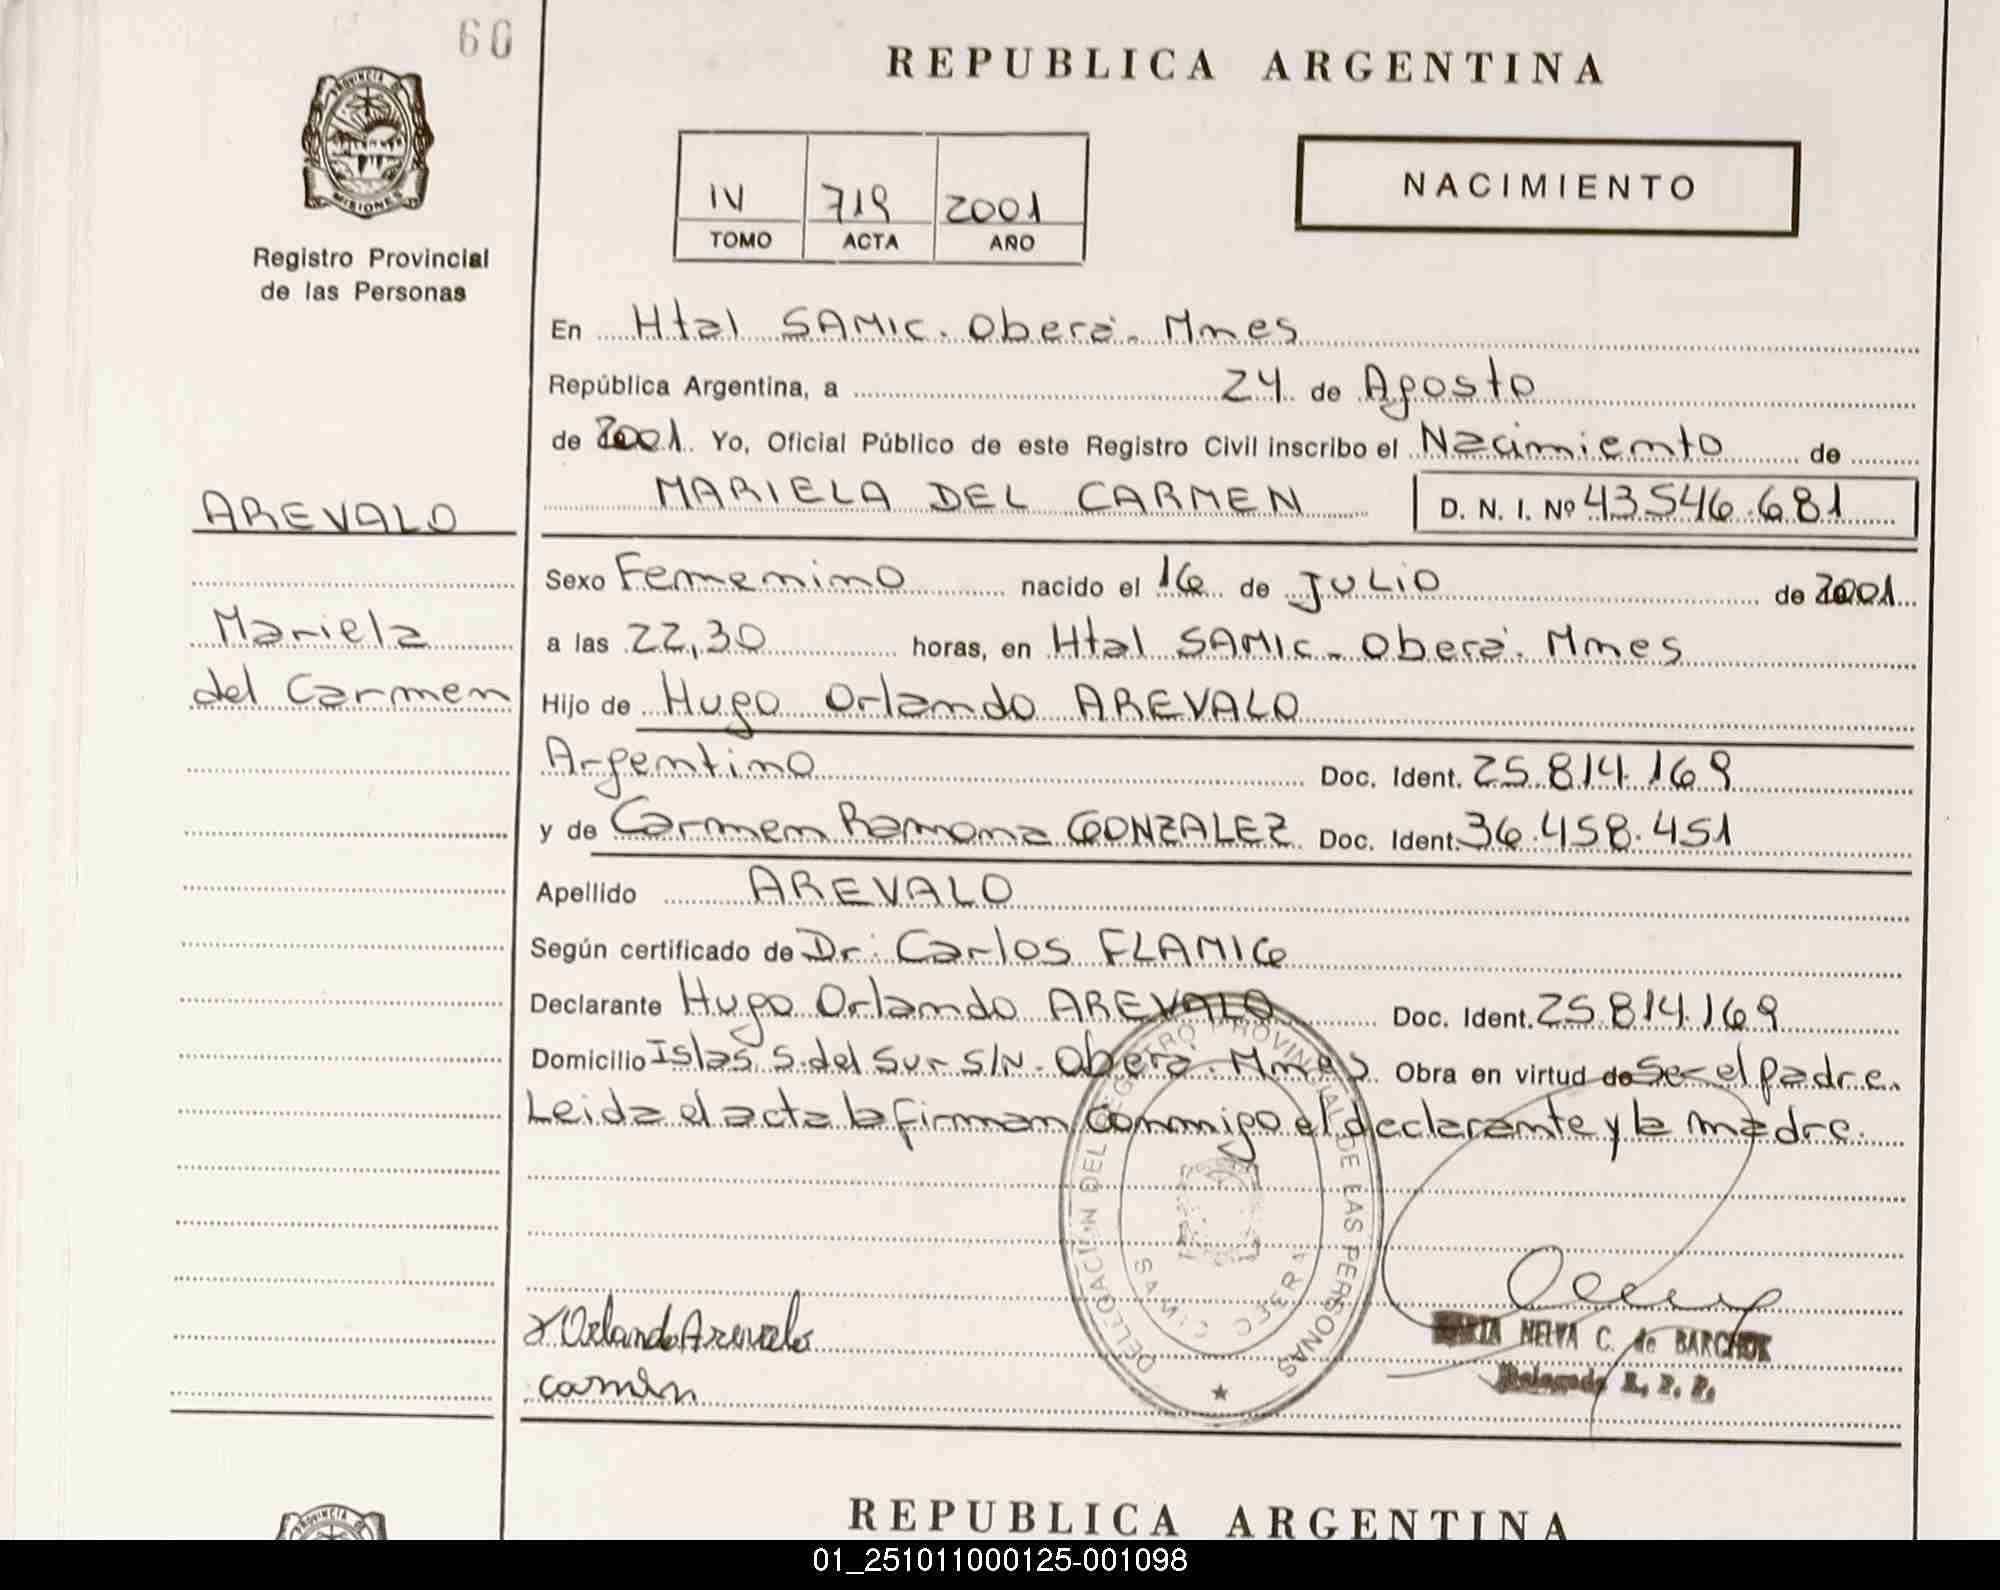 60
REPUBLICA ARGENTINA
PROVINCIA DE
MISIONES
Registro Provincial
de las Personas
IV 719 2001
TOMO ACTA AÑO
NACIMIENTO
En Htal SAMIC. Oberá. Mnes
República Argentina, a 24 de Agosto
de 2001. Yo, Oficial Público de este Registro Civil inscribo el Nacimiento de
AREVALO
MARIELA DEL CARMEN D. N. I. Nº 43.546.681
Sexo Femenino nacido el 16 de JULIO de 2001
Mariela
del Carmen
a las 22,30 horas, en Htal SAMIC. Oberá. Mnes
Hijo de Hugo Orlando AREVALO
Argentino Doc. Ident. 25.814.169
y de Carmen Ramona GONZALEZ Doc. Ident. 36.458.451
Apellido AREVALO
Según certificado de Dr: Carlos
Declarante Hugo Orlando AREVALO Doc. Ident. 25.814.169
Domicilio Islas S. del Sur S/N. Oberá. Mnes Obra en virtud de Ser el padre.
Leida el acta la firman conmigo el declarante y la madre.
DELEGACIÓN DEL REGISTRO PROVINCIAL DE LAS PERSONAS
Orlando Arevalo
Carmen
NELVA C. de BARCHUK
Delegada R. P. P.
REPUBLICA ARGENTINA
01_251011000125-001098